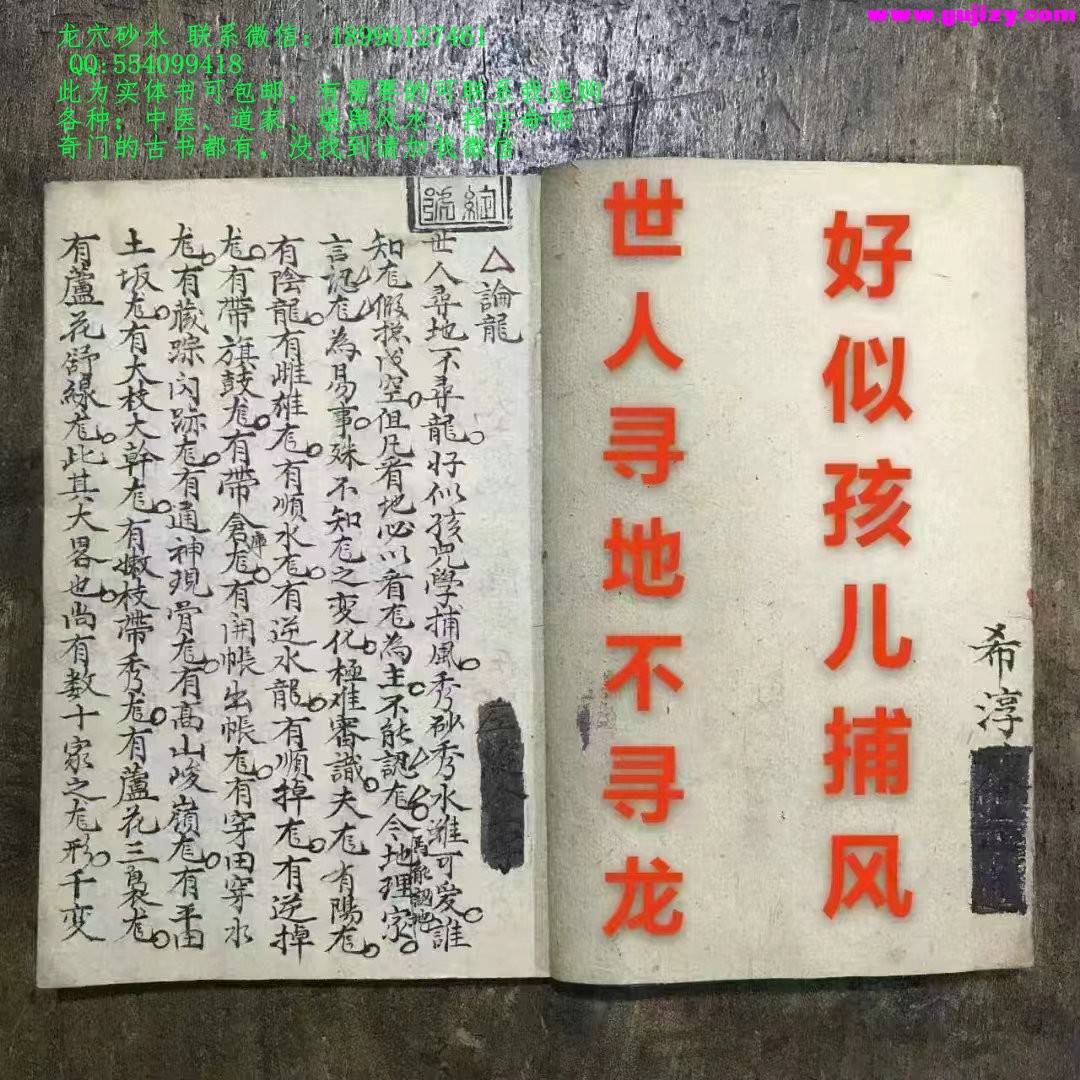 www.gujlzy.com
龙穴砂水 联系微信：18990127461
QQ:554099418
此为实体书可包邮，有需要的可联系我选购
各种：中医、道家、堪舆风水、择吉命相
奇门的古书都有，没找到请加我微信
希淳
好似孩儿捕风
世人寻地不寻龙
△論龍
世人尋地不尋龍。好似孩児學捕風。秀砂秀水雖可愛。誰
知尨假摠成空。但凡看地必以看尨為主。不能認尨焉能認地。今地理家
言認尨為易事。殊不知尨之变化。極难審識。夫尨有陽尨。
有陰龍。有雌雄尨。有順水尨。有逆水龍。有順掉尨。有逆掉
尨。有帶旗鼓尨。有帶倉庫尨。有開帳出帳尨。有穿田穿水
尨。有藏踪闪跡尨。有通神現骨尨。有高山峻嶺尨。有平田
土坂尨。有大枝大幹尨。有嫩枝帶秀尨。有蘆花三裊尨。
有蘆花舒線尨。此其大畧也。尚有数十家之尨形。千变